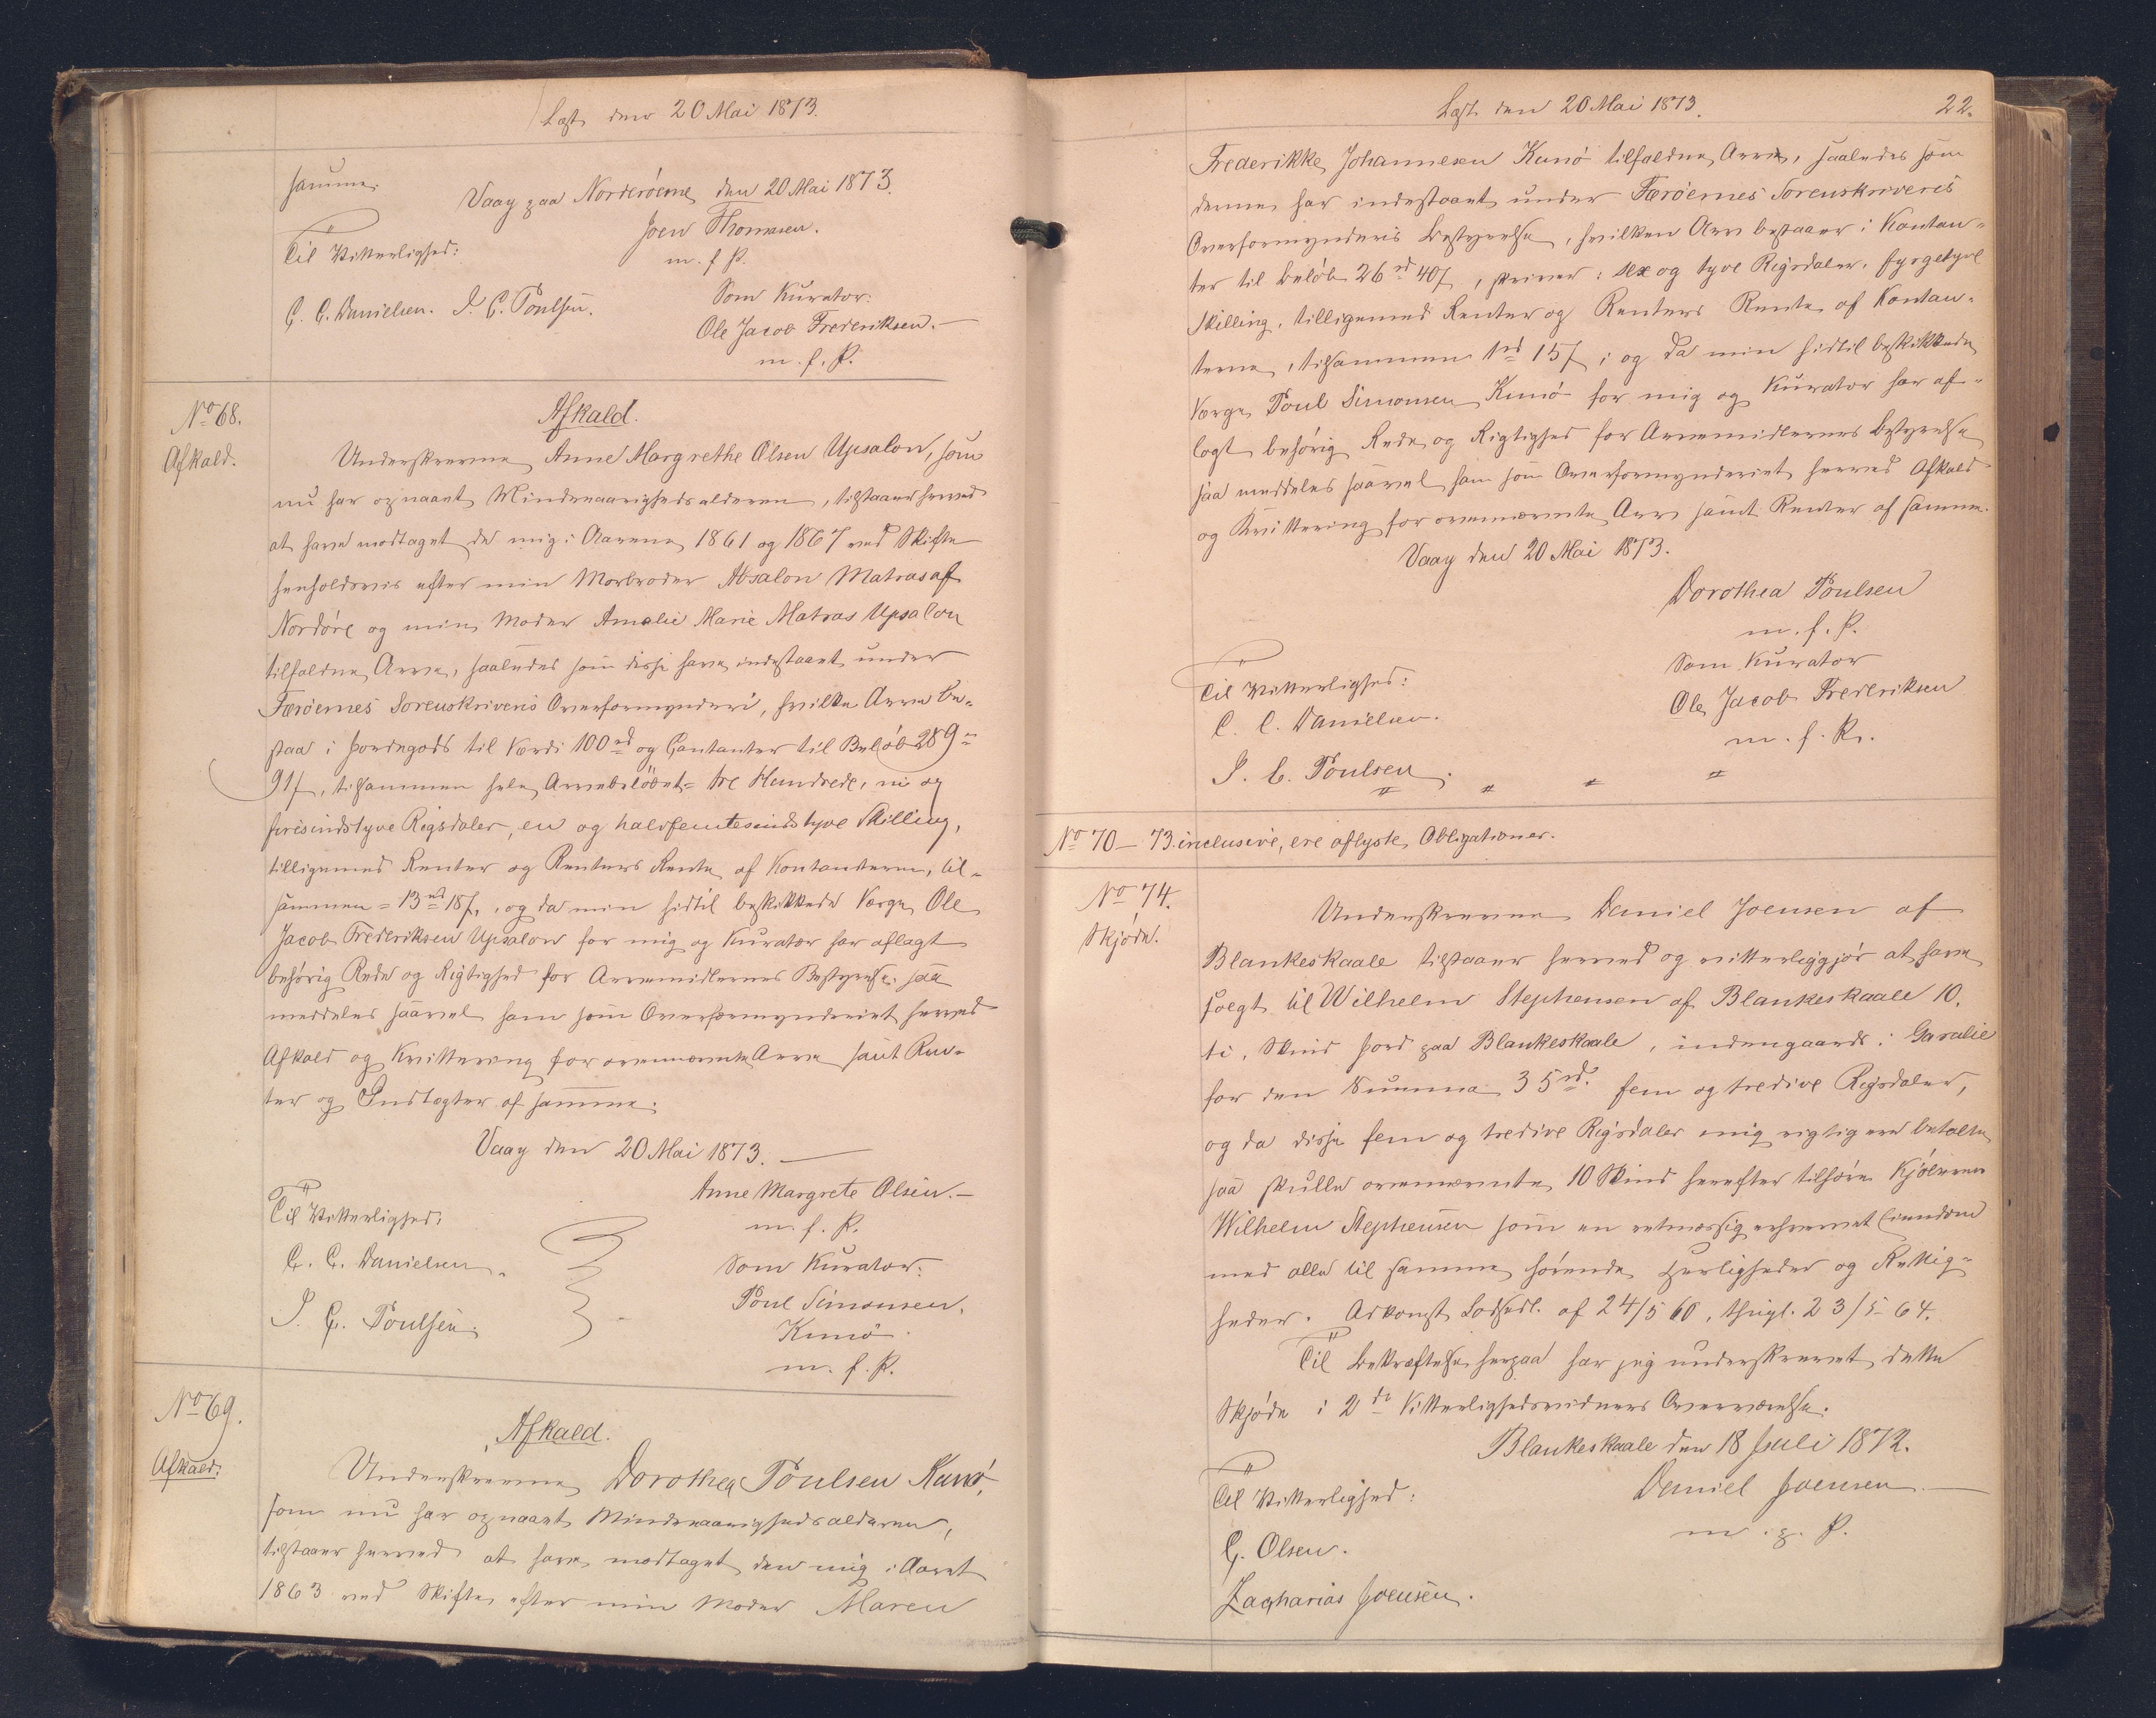 Læst den 20 Mai 1873.
samme.
Vaag paa Norderöerne den 20 Mai 1873.
Joen Thomasen.
m. f. P.
Til Vitterlighed:
C. C. Danielsen. J. C. Poulsen.
Som Kurator:
Ole Jacob Frederiksen.
m. f. P.
No 68.
Afkald.
Afkald.
Underskrevne Anne Margrethe Olsen Upsalon, som
nu har opnaaet Mindreaarighedsalderen, tilstaaer herved
at have modtaget de mig i Aarene 1861 og 1867 ved Skifte
henholdsvis efter min Morbroder Absalon Matras af
Nordöre og min Moder Amalie Marie Matras Upsalon
tilfaldne Arve, saaledes som disse have indestaaet under
Færöernes Sorenskriveris Overformynderi, hvilke Arve be-
staa i Jordegods til Værdi 100 rd og Contanter til Belöb 289 "
91 s, tilsammen hele Arvebelöbet = tre Hundrede, ni og
firsindstyve Rigsdaler, en og halvfemtesindstyve Skilling,
tilligemed Renter og Renters Rente af Kontanterne, til-
sammen = 13 rd 18 s, og da min hidtil beskikkede Værge Ole
Jacob Frederiksen Upsalon for mig og Kurator har aflagt
behörig Rede og Rigtighed for Arvemidlernes Bestyrelse, saa
meddeles saavel ham som Overformynderiet herved
Afkald og Kvittering for ovennævnte Arve samt Ren-
ter og Indtægter af samme.
Vaag den 20 Mai 1873.
Til Vitterlighed:
Anne Margrete Olsen.
m. f. P.
C. C. Danielsen.
Som Kurator:
J. C. Poulsen.
Poul Simonsen,
Kunö
m. f. P.
No 69.
Afkald.
Afkald.
Underskrevne Dorothea Poulsen Kunö,
som nu har opnaaet Mindreaarighedsalderen,
tilstaaer herved at have modtaget den mig i Aaret
1863 ved Skifte efter min Moder Maren
Læst den 20 Mai 1873.
22.
Frederikke Johannesen Kunö tilfaldne Arv, saaledes som
denne har indestaaet under Færöernes Sorenskriveris
Overformynderis Bestyrelse, hvilken Arv bestaaer i Kontan-
ter til Belöb 26 rd 40 s, skriver: sex og tyve Rigsdaler, fyrgetyve
Skilling, tilligemed Renter og Renters Rente af Kontan-
terne, tilsammen 1 rd 15 s; og da min hidtil beskikkede
Værge Poul Simonsen Kunö for mig og Kurator har af-
lagt behörig Rede og Rigtighed for Arvemidlernes Bestyrelse
saa meddeles saavel ham som Overformynderiet herved Afkald
og Kvittering for ovennævnte Arv samt Renter af samme.
Vaag den 20 Mai 1873.
Dorothea Poulsen
m. f. P.
Som Kurator
Til Vitterlighed:
Ole Jacob Frederiksen
C. C. Danielsen.
m. f. P.
J. C. Poulsen.
No 70 — 73 inclusive, ere aflyste Obligationer.
No 74.
Skjöde.
Underskrevne Daniel Joensen af
Blankeskaale tilstaaer herved og vitterliggjör at have
solgt til Wilhelm Stephensen af Blankeskaale 10,
ti, Skind Jord paa Blankeskaale, indengaards i Garalie
for den Summa 35 rd. fem og tredive Rigsdaler,
og da disse fem og tredive Rigsdaler mig rigtig ere betalte
saa skulle ovennævnte 10 Skind herefter tilhöre Kjöberen
Wilhelm Stephensen som en retmæssig erhvervet Eiendom
med alle til samme hörende Herligheder og Rettig-
heder. Adkomst Lodsedl. af 24/5 60, thingl. 23/5 64.
Til Bekræftelse herpaa har jeg underskrevet dette
Skjöde i 2 de Vitterlighedsvidners Overværelse.
Blankeskaale den 18 Juli 1872.
Til Vitterlighed:
Daniel Joensen.
m. p. P.
G. Olsen.
Zacharias Joensen.